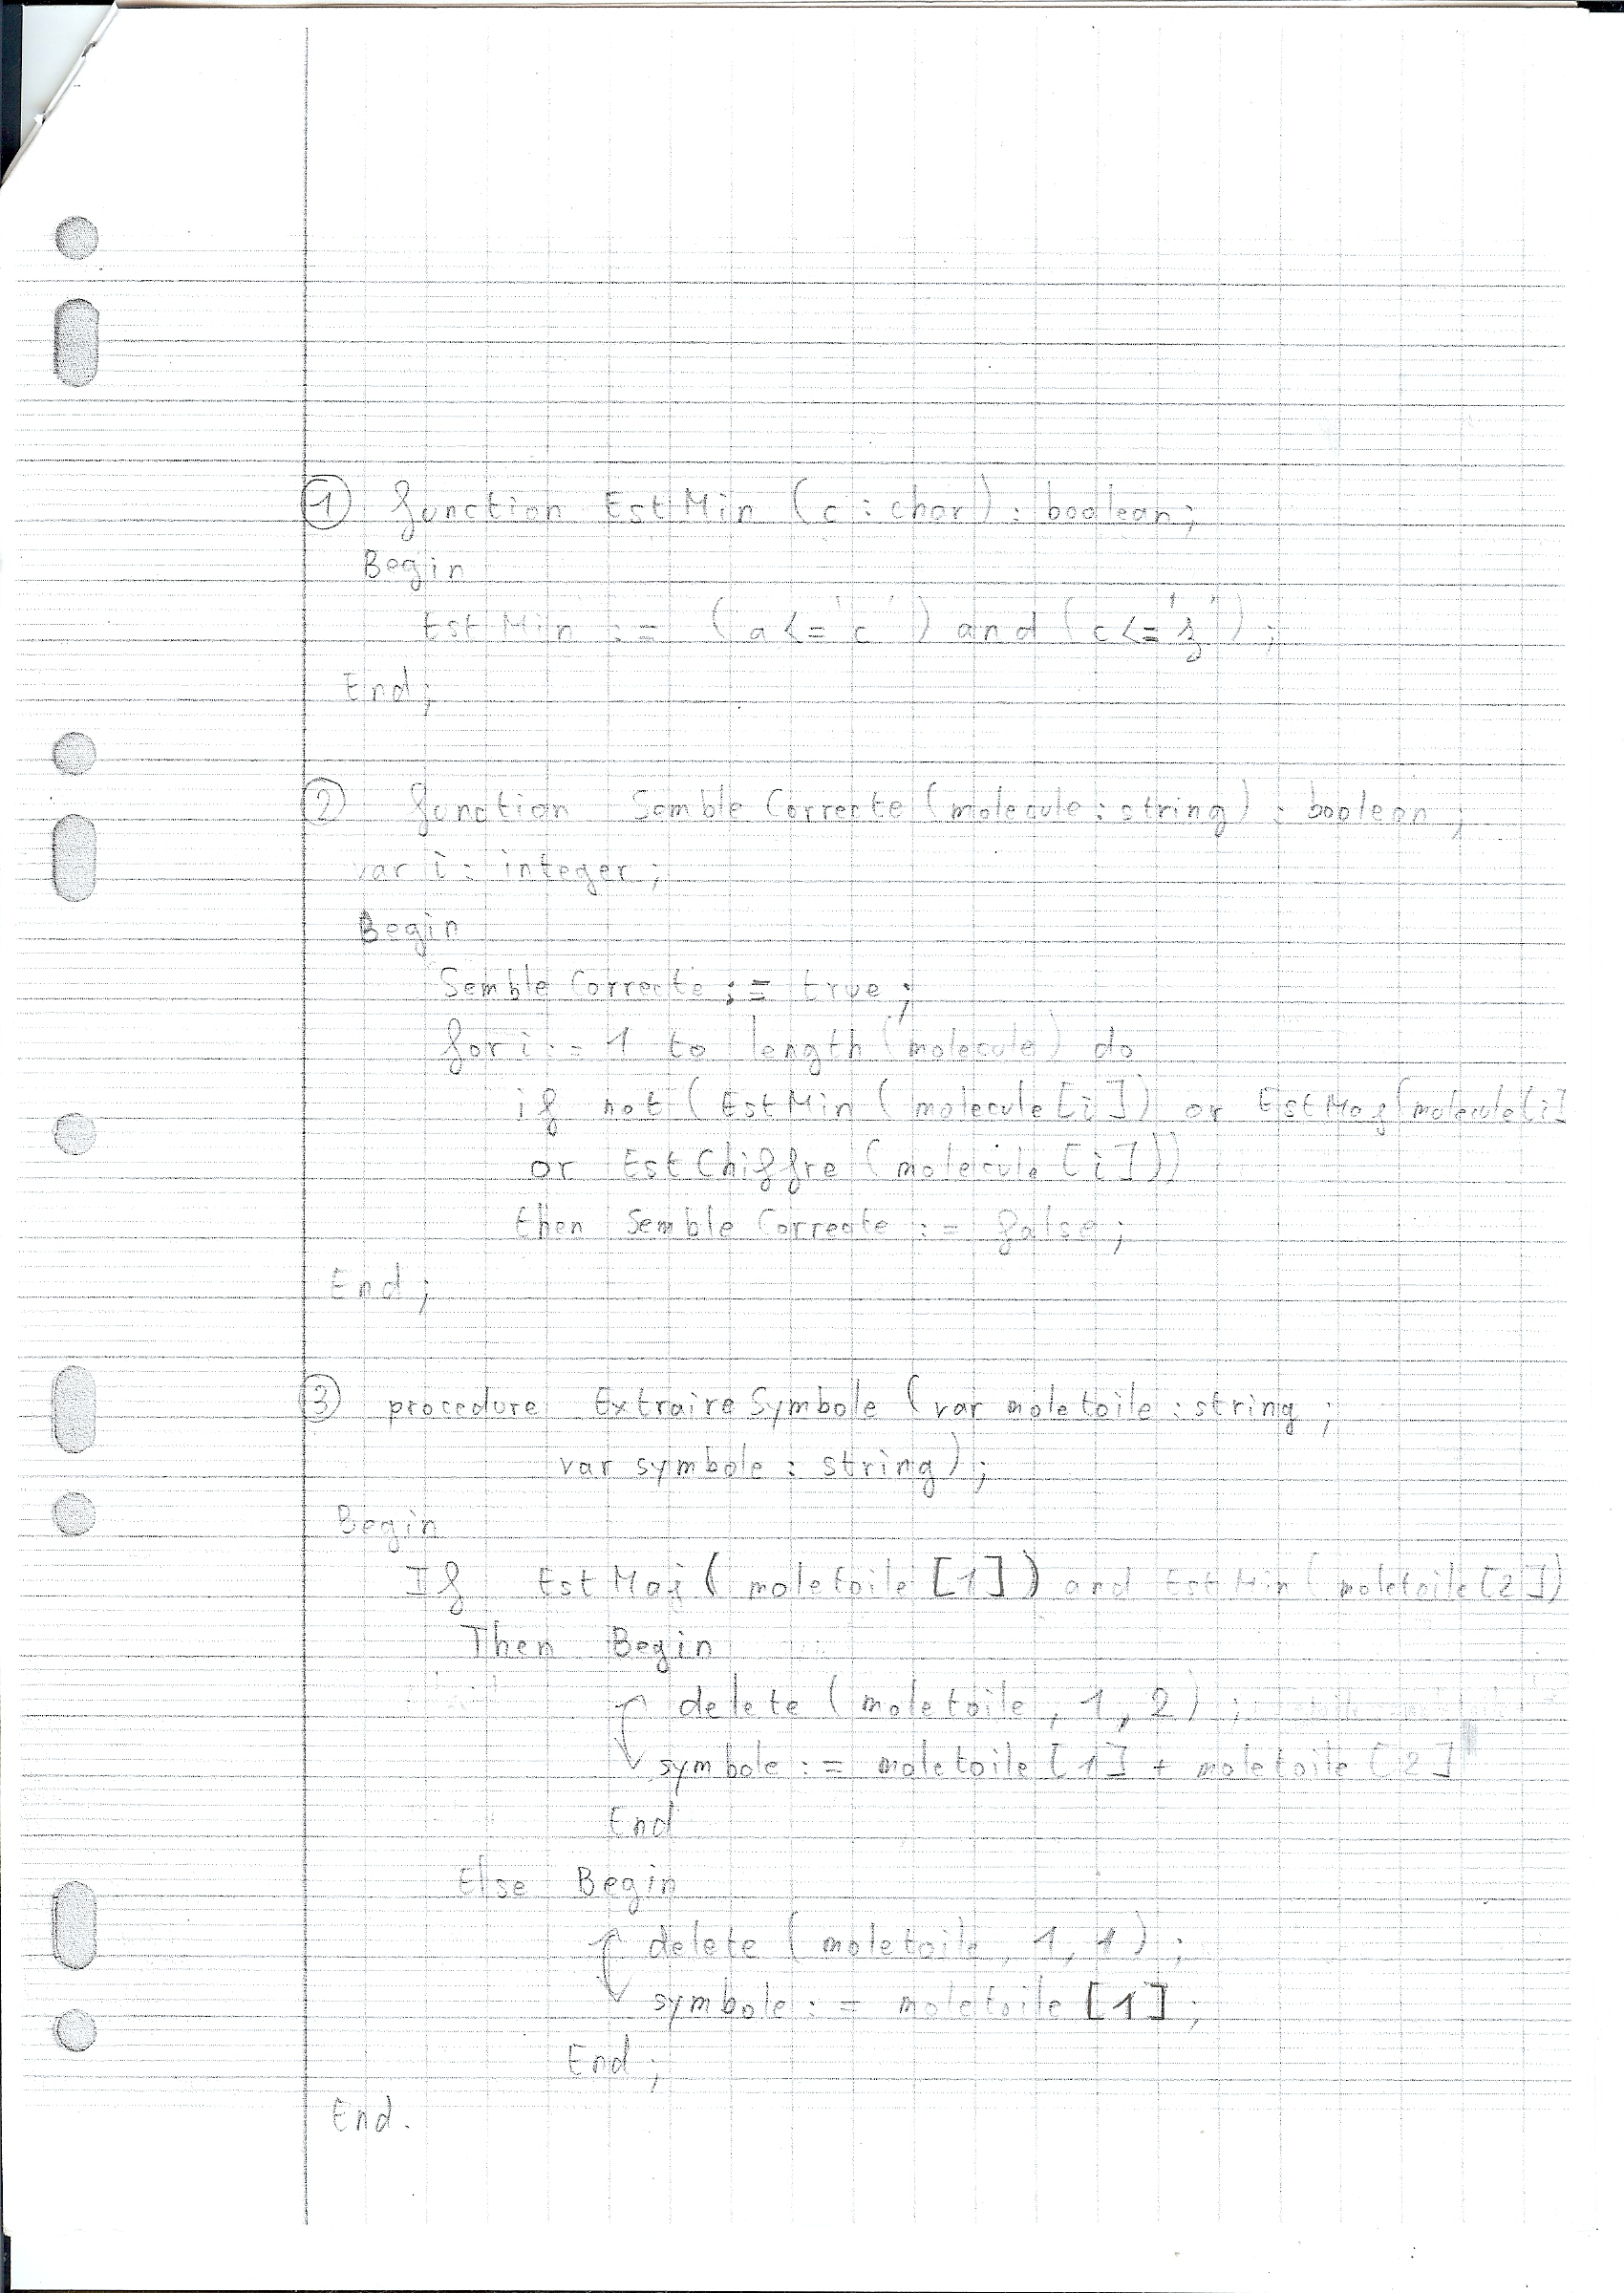 ① function EstMin (c : char) : boolean;
Begin
EstMin := (a <= 'c') and (c <= 'z');
End;
② function SembleCorrecte (molecule : string) : boolean;
var i : integer;
Begin
SembleCorrecte := true;
for i := 1 to length (molecule) do
if not (EstMin (molecule [i]) or EstMaj (molecule [i]
or EstChiffre (molecule [i]))
then SembleCorrecte := false;
End;
③ procedure ExtraireSymbole (var moletoile : string ;
var symbole : string);
Begin
If EstMaj (moletoile [1]) and EstMin (moletoile [2])
Then Begin
delete (moletoile, 1, 2);
symbole := moletoile [1] + moletoile [2]
End
Else Begin
delete (moletoile, 1, 1);
symbole := moletoile [1];
End;
End.